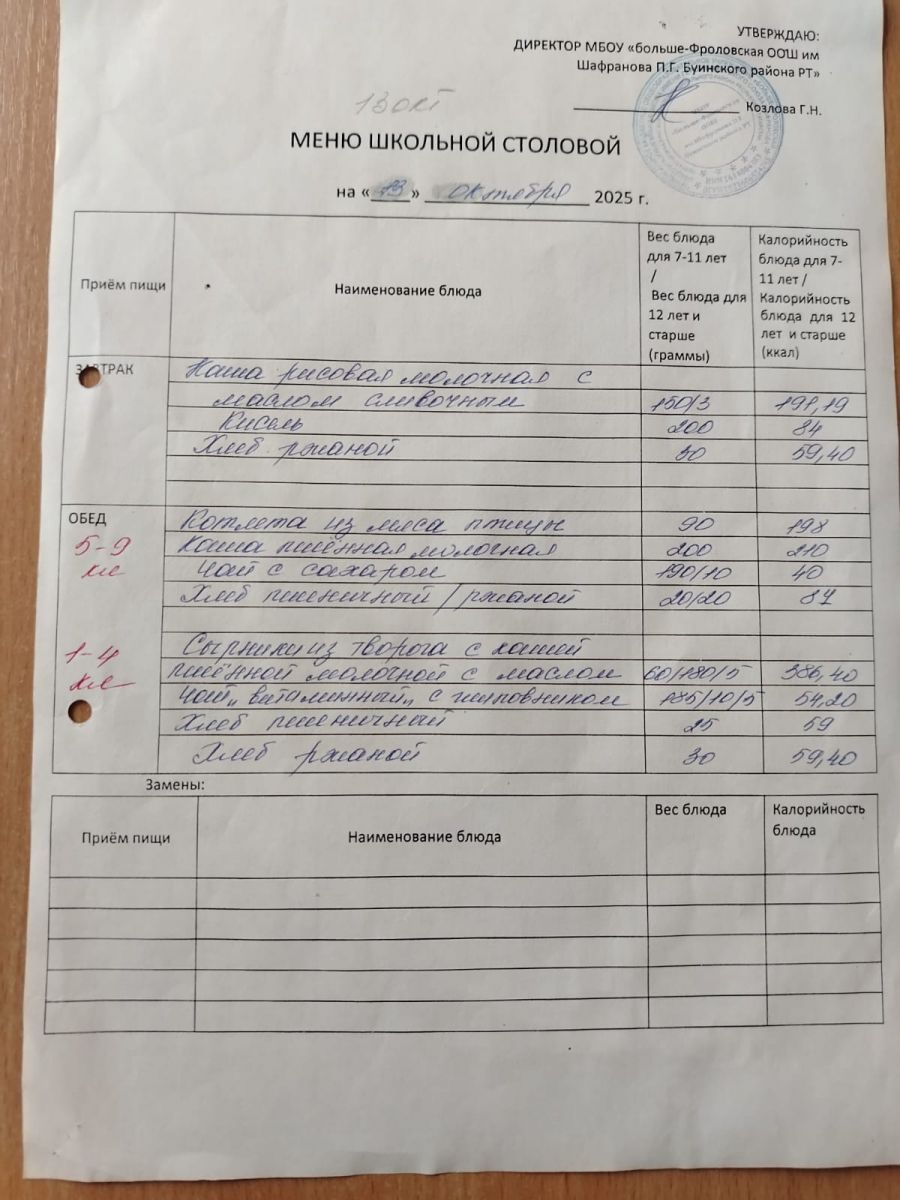 УТВЕРЖДАЮ:
ДИРЕКТОР МБОУ «больше-Фроловская ООШ им
Шафранова П.Г. Буинского района РТ»
Козлова Г.Н.
13 окт
МЕНЮ ШКОЛЬНОЙ СТОЛОВОЙ
на «13» октября 2025 г.
Приём пищи
Наименование блюда
Вес блюда
для 7-11 лет
/
Вес блюда для
12 лет и
старше
(граммы)
Калорийность
блюда для 7-
11 лет /
Калорийность
блюда для 12
лет и старше
(ккал)
ЗАВТРАК
Каша рисовая молочная с
маслом сливочным 150/3 191,19
Кисель 200 84
Хлеб ржаной 30 59,40
ОБЕД
5-9
кл
Котлета из мяса птицы 90 198
Каша пшённая молочная 200 210
Чай с сахаром 190/10 40
Хлеб пшеничный / ржаной 20/20 87
1-4
кл
Сырники из творога с кашей
пшённой молочной с маслом 60/180/5 386,40
Чай „витаминный„ с шиповником 185/10/5 54,20
Хлеб пшеничный 25 59
Хлеб ржаной 30 59,40
Замены:
Приём пищи
Наименование блюда
Вес блюда
Калорийность
блюда